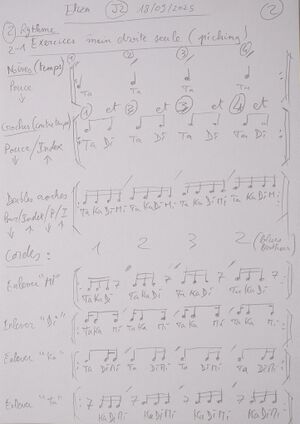 Ehen J2 18/09/2025 2
2 Rythme
2-1 Exercices main droite seule (piching)
Noires (temps) 1 2 3 4
Pouce Ta Ta Ta Ta
Croches (contretemps) 1 et 2 et 3 et 4 et
Pouce/Index Ta Di Ta Di Ta Di Ta Di
Doubles croches
Pou/Index/P/I Ta Ka Di Mi Ta Ka Di Mi Ta Ka Di Mi Ta Ka Di Mi
Cordes: 1 2 3 2
Enlever "Mi" Ta Ka Di Ta Ka Di Ta Ka Di Ta Ka Di
Enlever "Di" Ta Ka Mi Ta Ka Mi Ta Ka Mi Ta Ka Mi
Enlever "Ka" Ta Di Mi Ta Di Mi Ta Di Mi Ta Di Mi
Enlever "Ta" Ka Di Mi Ka Di Mi Ka Di Mi Ka Di Mi